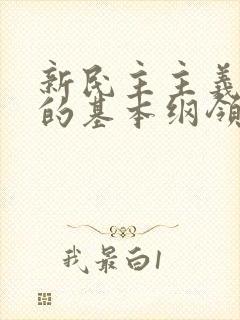 新民主主义
的基本纲领
我最白1